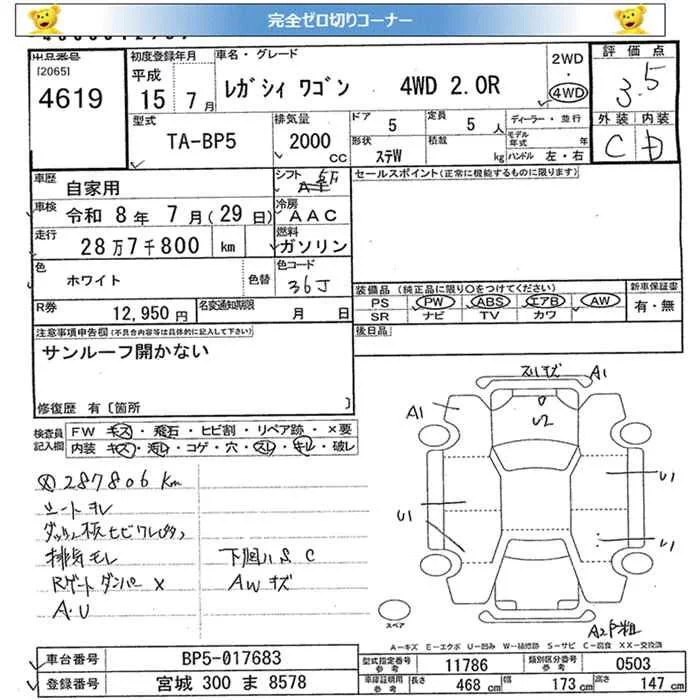 完全ゼロ切りコーナー
出品番号
[2065]
4619
初度登録年月
平成
15 年 7 月
車名・グレード
レガシィ ワゴン 4WD 2.0R
2WD
・
4WD
評価点
3.5
型式
TA-BP5
排気量
2000
CC
ドア
5
定員
5 人
形状
ステW
積載
kg
ディーラー・並行
モデル年式 年
ハンドル 左・右
外装 内装
C
車歴
自家用
シフト
車検
令和 8 年 7 月(29 日)
冷房
AAC
走行
28万7千800 km
燃料
ガソリン
色
ホワイト
色替
色コード
36J
R券
12,950円
名変通知期限
月 日
セールスポイント(正常に機能するものに限ります)
装備品(純正品に限り○をつけてください)
PS PW ABS エアB AW
SR ナビ TV カワ
新車保証書
有・無
後日品
注意事項申告欄(不具合内容等は具体的に記入して下さい)
サンルーフ開かない
修復歴 有〔箇所 〕
検査員記入欄
FW キズ・飛石・ヒビ割・リペア跡・×要
内装 キズ・汚レ・コゲ・穴・スレ・キレ・破レ
287806 Km
シートヨレ
排気モレ
Rゲートダンパー ×
A.U
下廻りS C
AWキズ
スリキズ A1
A1
U2
U1
U1
U1
スペア
A2P粗
A-キズ E-エクボ U-凹み W-補修跡 S-サビ C-腐食 XX-交換済
車台番号
BP5-017683
登録番号
宮城 300 ま 8578
型式指定番号
参考
11786
類別区分番号
参考
0503
車庫証明用
参考
長さ 468 cm 幅 173 cm 高さ 147 cm